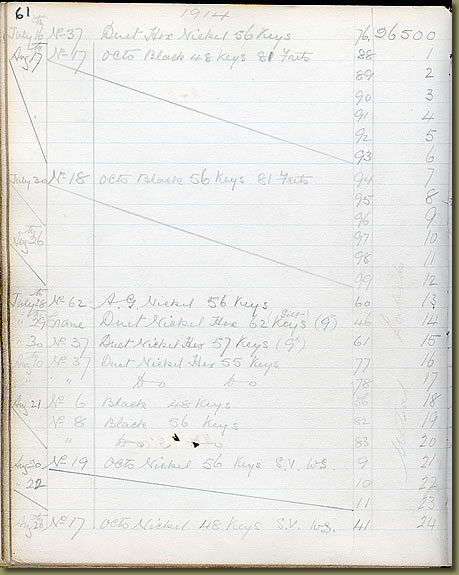 61 1914
July 16th No 37 Duet Hex Nickel 56 Keys 76 26500
Aug 17th No 17 Octo Black 48 Keys 81 Frits 88 1
89 2
90 3
91 4
92 5
93 6
July 30 No 18 Octo Black 56 Keys 81 Frits 94 7
95 8
96 9
Aug 26th 97 10
98 11
99 12
July 28 No 62 A.G. Nickel 56 Keys 60 13
" 29th Crane Duet Nickel Hex 62 Keys (G) 46 14
" 30 No 37 Duet Nickel Hex 57 Keys (G) 61 15
Aug 10th No 37 Duet Nickel Hex 55 Keys 77 16
" " Do Do 78 17
Aug 21 No 6 Black 48 Keys 56 18
No 8 Black 56 Keys 82 19
" Do 83 20
Aug 20 No 19 Octo Nickel 56 Keys S.V. WS. 9 21
" 22 10 22
11 23
Aug 20th No 17 Octo Nickel 48 Keys S.V. WS. 41 24